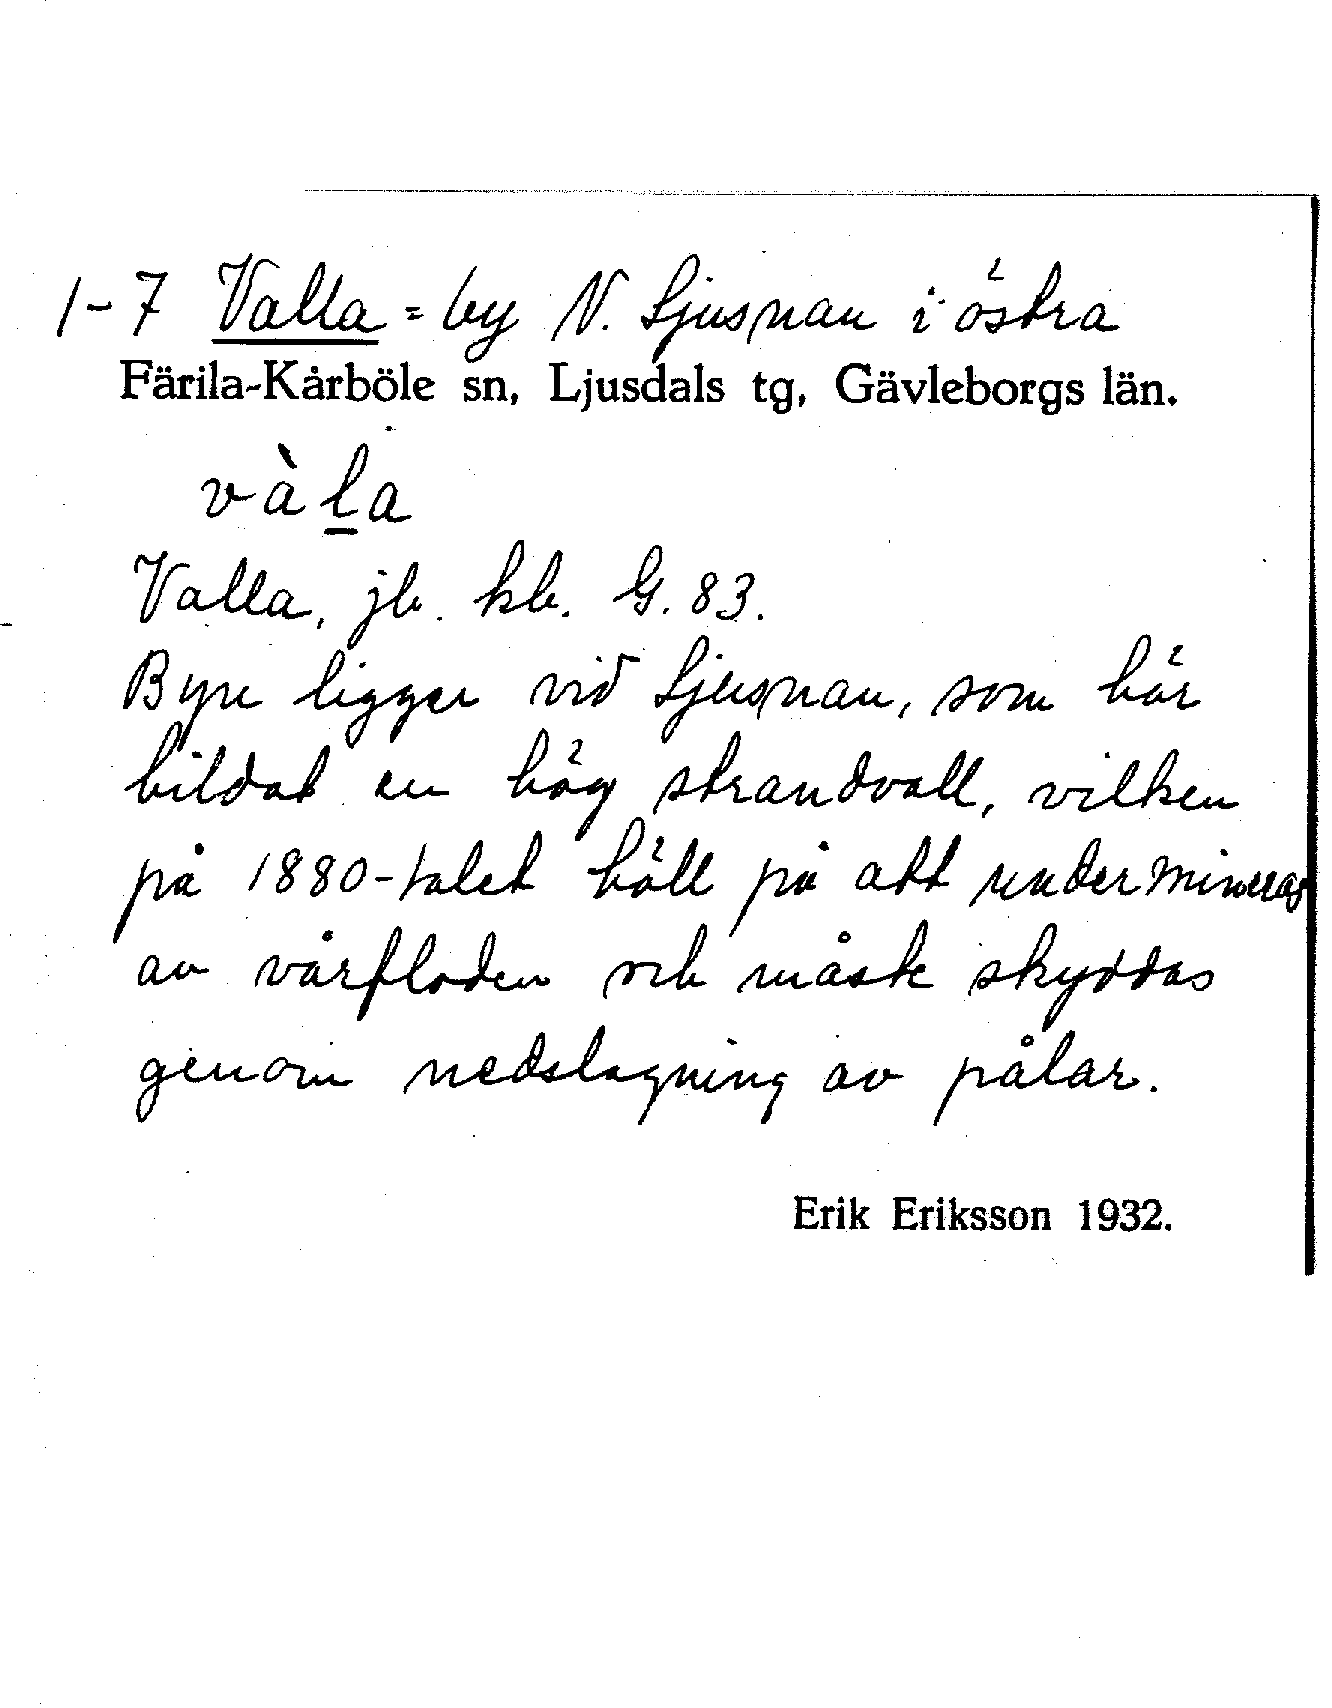 1-7 Valla = by N. Ljusnan i östra
Färila-Kårböle sn, Ljusdals tg, Gävleborgs län.
vàl̲a
Valla, jb. kb. G. 83.
Byn ligger vid Ljusnan, som här
bildat en hög strandvall, vilken
på 1880-talet höll på att undermineras
av vårfloden och måste skyddas
genom nedslagning av pålar.
Erik Eriksson 1932.